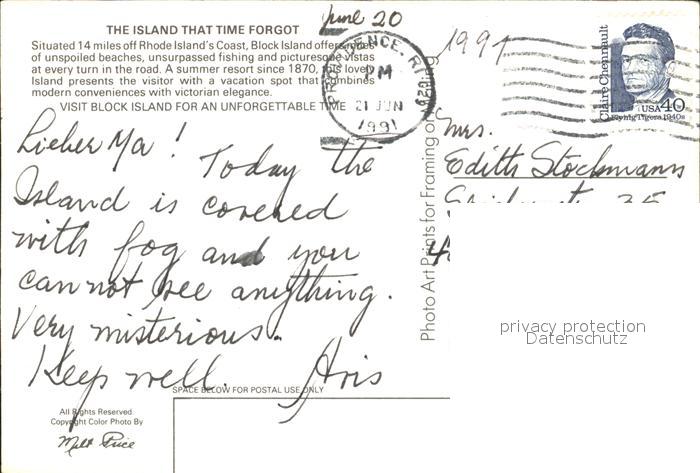 June 20
1991
THE ISLAND THAT TIME FORGOT
Situated 14 miles off Rhode Island's Coast, Block Island offers miles
of unspoiled beaches, unsurpassed fishing and picturesque vistas
at every turn in the road. A summer resort since 1870, this lovely
Island presents the visitor with a vacation spot that combines
modern conveniences with victorian elegance.
VISIT BLOCK ISLAND FOR AN UNFORGETTABLE TIME
PROVIDENCE, RI 029
PM
21 JUN
1991
Claire Chennault
USA 40
Flying Tigers 1940s
Lieber Ma! Today the
Island is covered
with fog and you
can not see anything.
Very misterious.
Keep well. Aris
Mrs.
Edith Stockmann
Photo Art Prints for Framing or
SPACE BELOW FOR POSTAL USE ONLY
All Rights Reserved
Copyright Color Photo By
Milt Price
privacy protection
Datenschutz